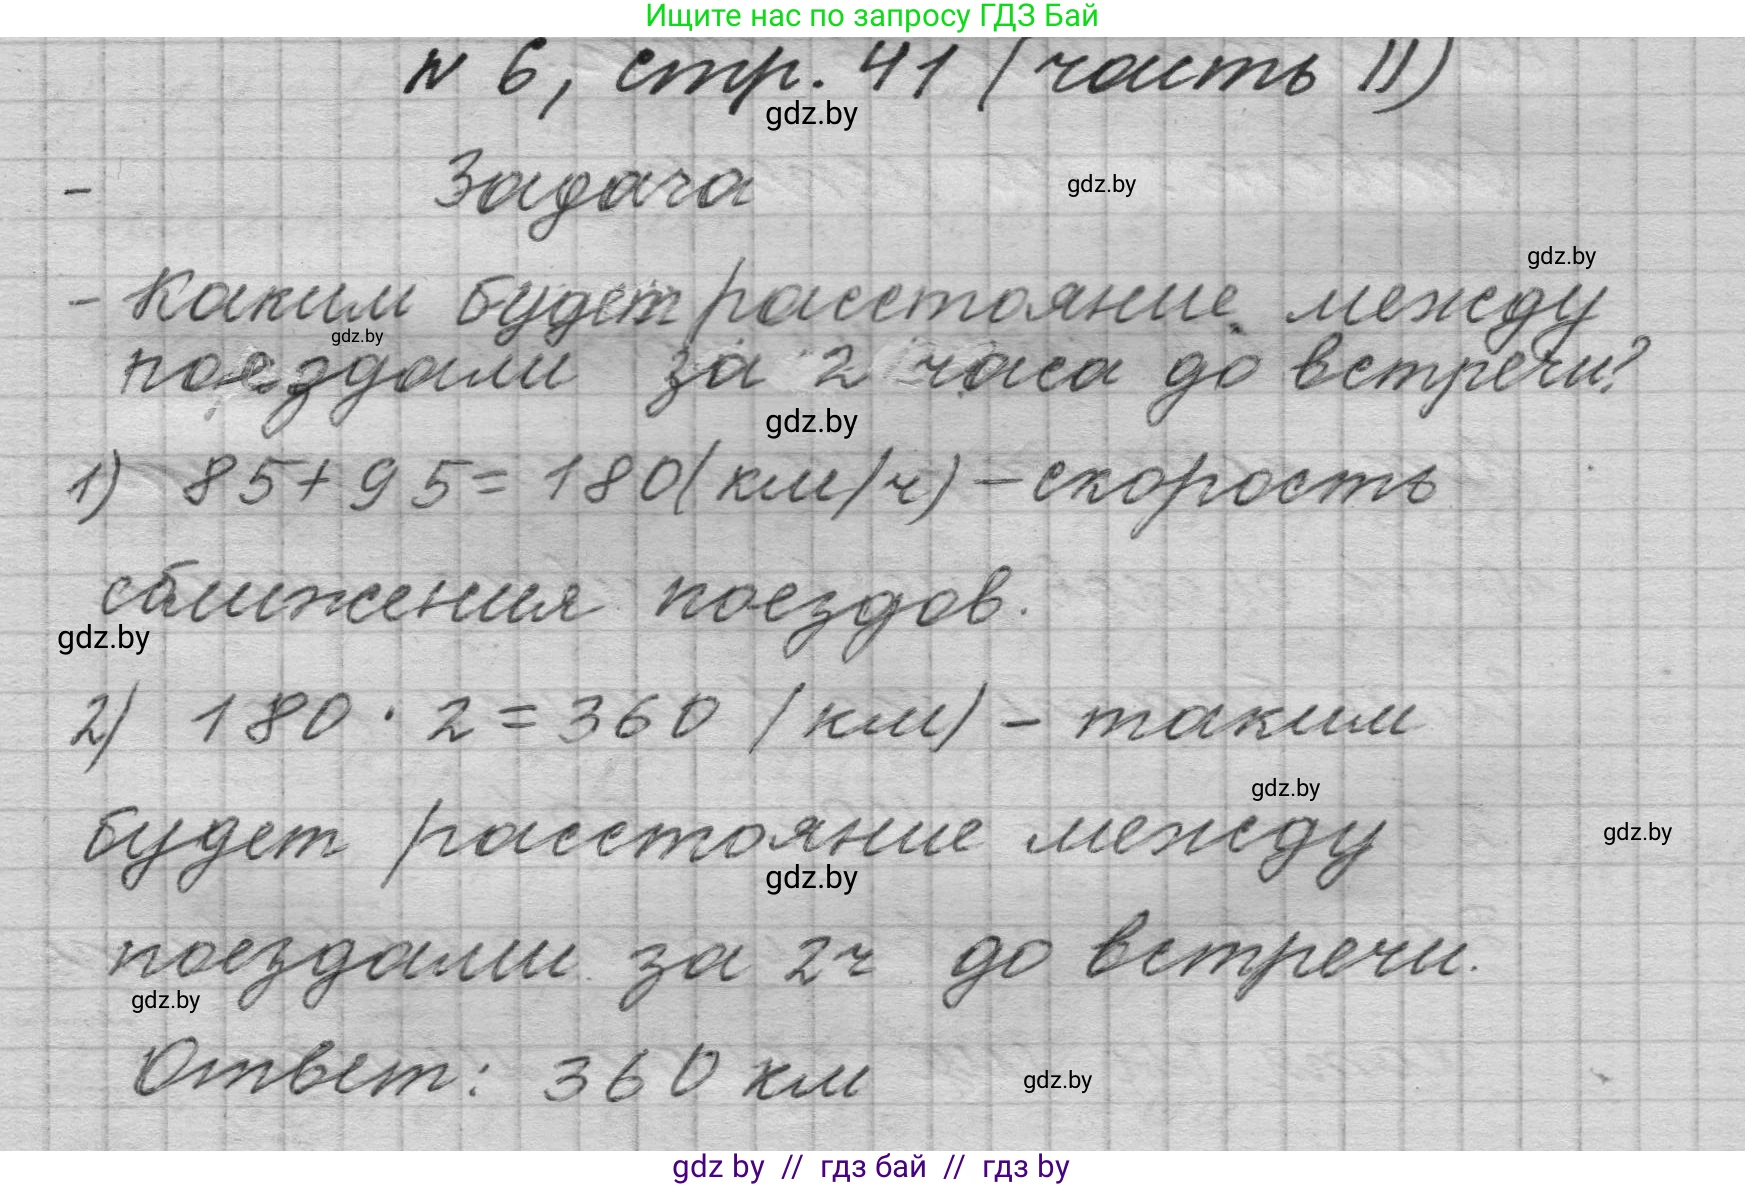 Ищите нас по запросу ГДЗ Бай
N 6, стр. 41 (часть II)
gdz.by
Задача
gdz.by
gdz.by
- Каким будет расстояние между
gdz.by
поездами за 2 часа до встречи?
gdz.by
1) 85+95=180(км/ч) - скорость
сближения поездов.
gdz.by
2) 180·2=360 (км) - таким
gdz.by
будет расстояние между
gdz.by
gdz.by
поездами за 2ч до встречи.
gdz.by
Ответ: 360 км
gdz.by
gdz by // гдз бай // гдз by